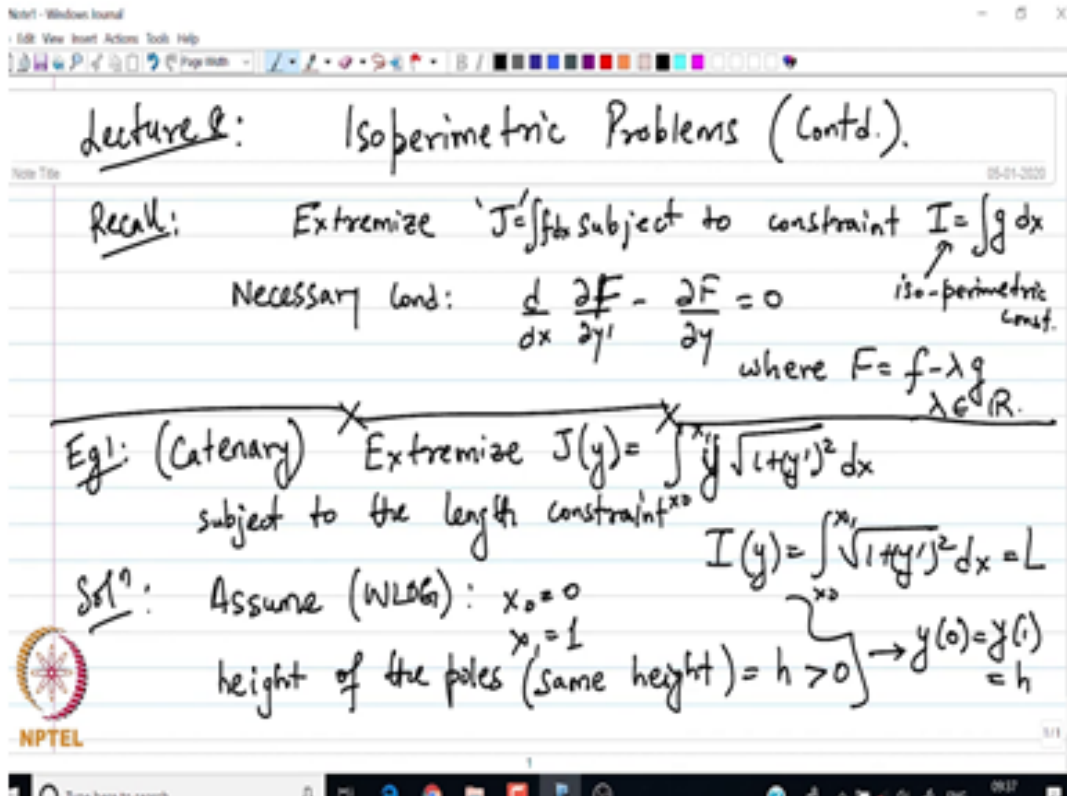 Note1 - Windows Journal
Edit View Insert Actions Tools Help
Page Width
B I
Lecture 8: Isoperimetric Problems (Contd.).
Note Title
05-01-2020
Recall: Extremize 'J'=∫fdx subject to constraint I = ∫g dx
iso-perimetric const.
Necessary Cond: d/dx ∂F/∂y' - ∂F/∂y = 0
where F = f-λg
λ ∈ ℝ.
Eg1: (Catenary) Extremize J(y) = ∫_{x0}^{x1} y √(1+(y')²) dx
subject to the length constraint
I(y) = ∫_{x0}^{x1} √(1+(y')²) dx = L
Solⁿ: Assume (WLOG): x₀ = 0
x₁ = 1
height of the poles (same height) = h > 0] → y(0) = y(1) = h
NPTEL
1/1
1
Type here to search
09:37